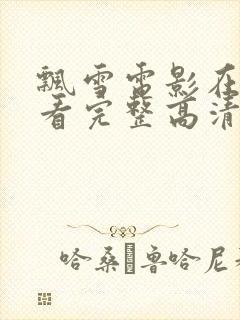 飘雪雷影在
看完整高清
哈桑·鲁哈尼